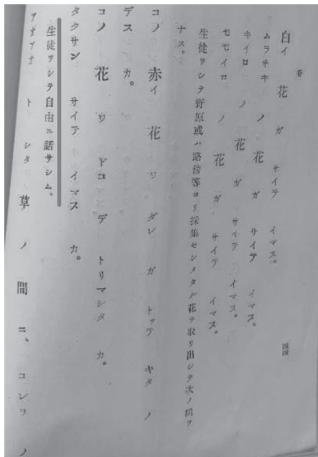 白イ 花 ガ サイテ イマス。
ムラサキ ノ 花 ガ サイテ イマス。
キイロ ノ 花 ガ サイテ イマス。
モモイロ ノ 花 ガ サイテ イマス。
生徒ヲシテ野原或ハ路傍等ヨリ採集セシメタル花ヲ取リ出シテ次ノ問ヲ
ナス。
コノ 赤イ 花 ハ ダレ ガ トッテ キタ ノ
デス カ。
コノ 花 ヲ ドコ デ トリマシタ カ。
タクサン サイテ イマス カ。
生徒ヲシテ自由ニ話サシム。
アヲアヲ ト シタ 草 ノ 間 ニ、コレラ ノ